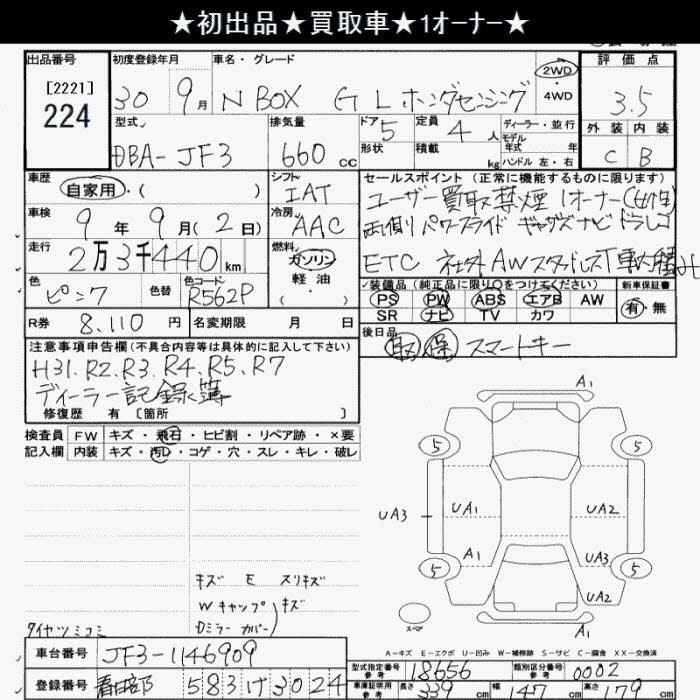 ★初出品★買取車★1オーナー★
出品番号 初度登録年月 車名・グレード 評価点
[2221]
224
30 9月 N BOX G L ホンダセンシング 2WD 4WD 3.5
型式 排気量 ドア 5 定員 4人 ディーラー・並行 外装 内装
DBA-JF3 660cc 形状 積載 kg モデル年式 年式 ハンドル 左・右 C B
車歴 シフト セールスポイント (正常に機能するものに限ります)
自家用・( ) IAT ユーザー買取 禁煙 1オーナー(女性)
車検 9年9月(2日) 冷房 AAC 両側パワースライド ギャザズナビ ドラレコ
走行 2万3千440km 燃料 ガソリン 軽油 ( ・ ) ETC 社外AWスタッドレスT車内積み
色 ピンク 色替 色コード R562P
装備品(純正品に限り○をつけてください) 新車保証書
PS PW ABS エアB AW 有・無
SR ナビ TV カワ
R券 8,110円 名変期限 月 日
後日品 取 保 スマートキー
注意事項申告欄(不具合内容等は具体的に記入して下さい)
H31、R2、R3、R4、R5、R7
ディーラー記録簿
修復歴 有 [箇所 ]
検査員 FW キズ・飛石・ヒビ割・リペア跡・×要
記入欄 内装 キズ・汚レ・コゲ・穴・スレ・キレ・破レ
A1
5 5
UA3 UA1 UA2
A1 UA3
UA2
5 5
スペア
A1
キズ E スリキズ
Wキャップ キズ
Dミラーカバー
タイヤツミコミ
A-キズ E-エクボ U-凹み W-補修跡 S-サビ C-腐食 XX-交換済
車台番号 JF3-1146909
型式指定番号 参考 18656 類別区分番号 参考 0002
登録番号 春日部 583 け 3024
車庫証明用 参考 長さ 339cm 幅 147cm 高さ 179cm